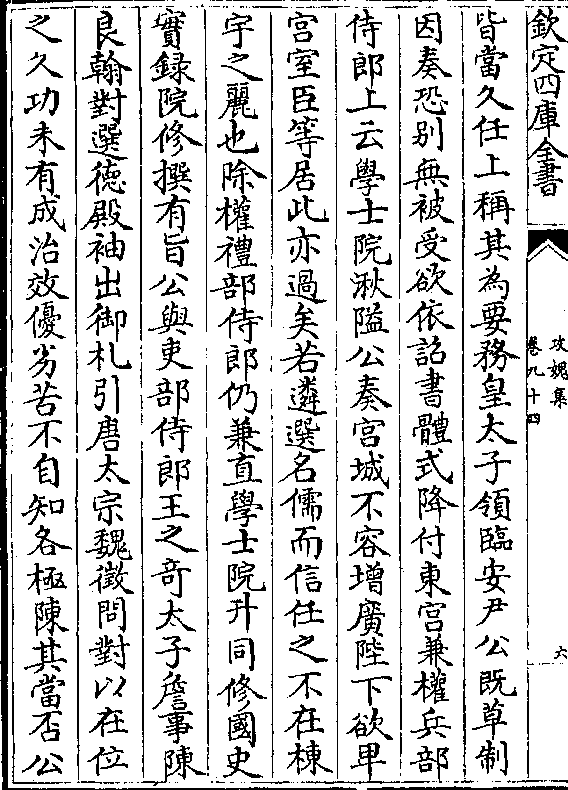 欽定四庫全書
攻媿集
卷九十四
六
皆當久任上稱其為要務皇太子領臨安尹公既草制
因奏恐别無被受欲依詔書體式降付東宫兼權兵部
侍郎上云學士院湫隘公奏宫城不容增廣陛下欲卑
宫室臣等居此亦過矣若遴選名儒而信任之不在棟
宇之麗也除權禮部侍郎仍兼直學士院升同修國史
實録院修撰有旨公與吏部侍郎王之竒太子詹事陳
良翰對選徳殿袖出御札引唐太宗魏徵問對以在位
之久功未有成治效優劣苦不自知各極陳其當否公